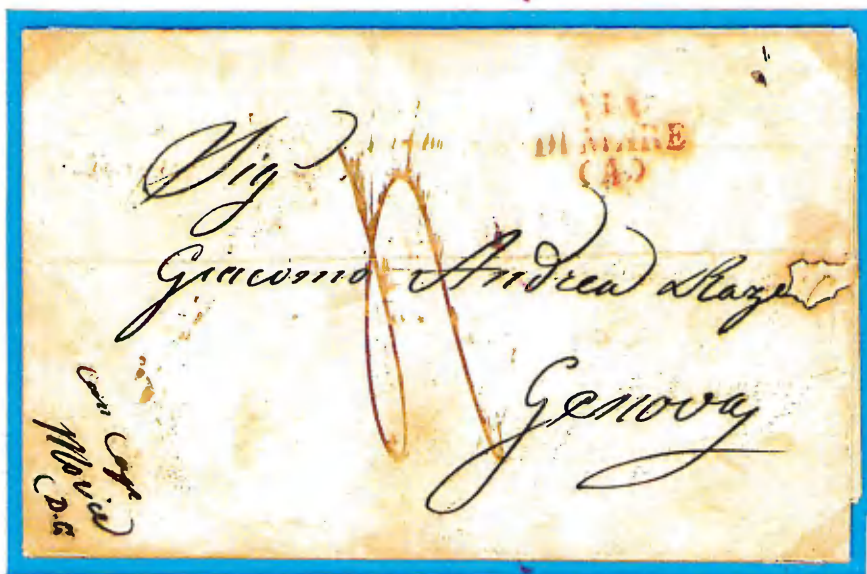 VIA
DI MARE
(A)
Sig
Giacomo Andrea
Genova
con Cap
D.G